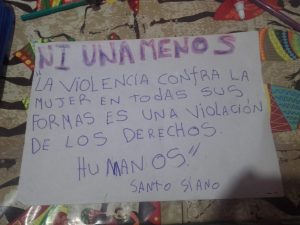 NI UNA MENOS
"LA VIOLENCIA CONTRA LA
MUJER EN TODAS SUS
FORMAS ES UNA VIOLACIÓN
DE LOS DERECHOS.
HUMANOS."
SANTO SIANO